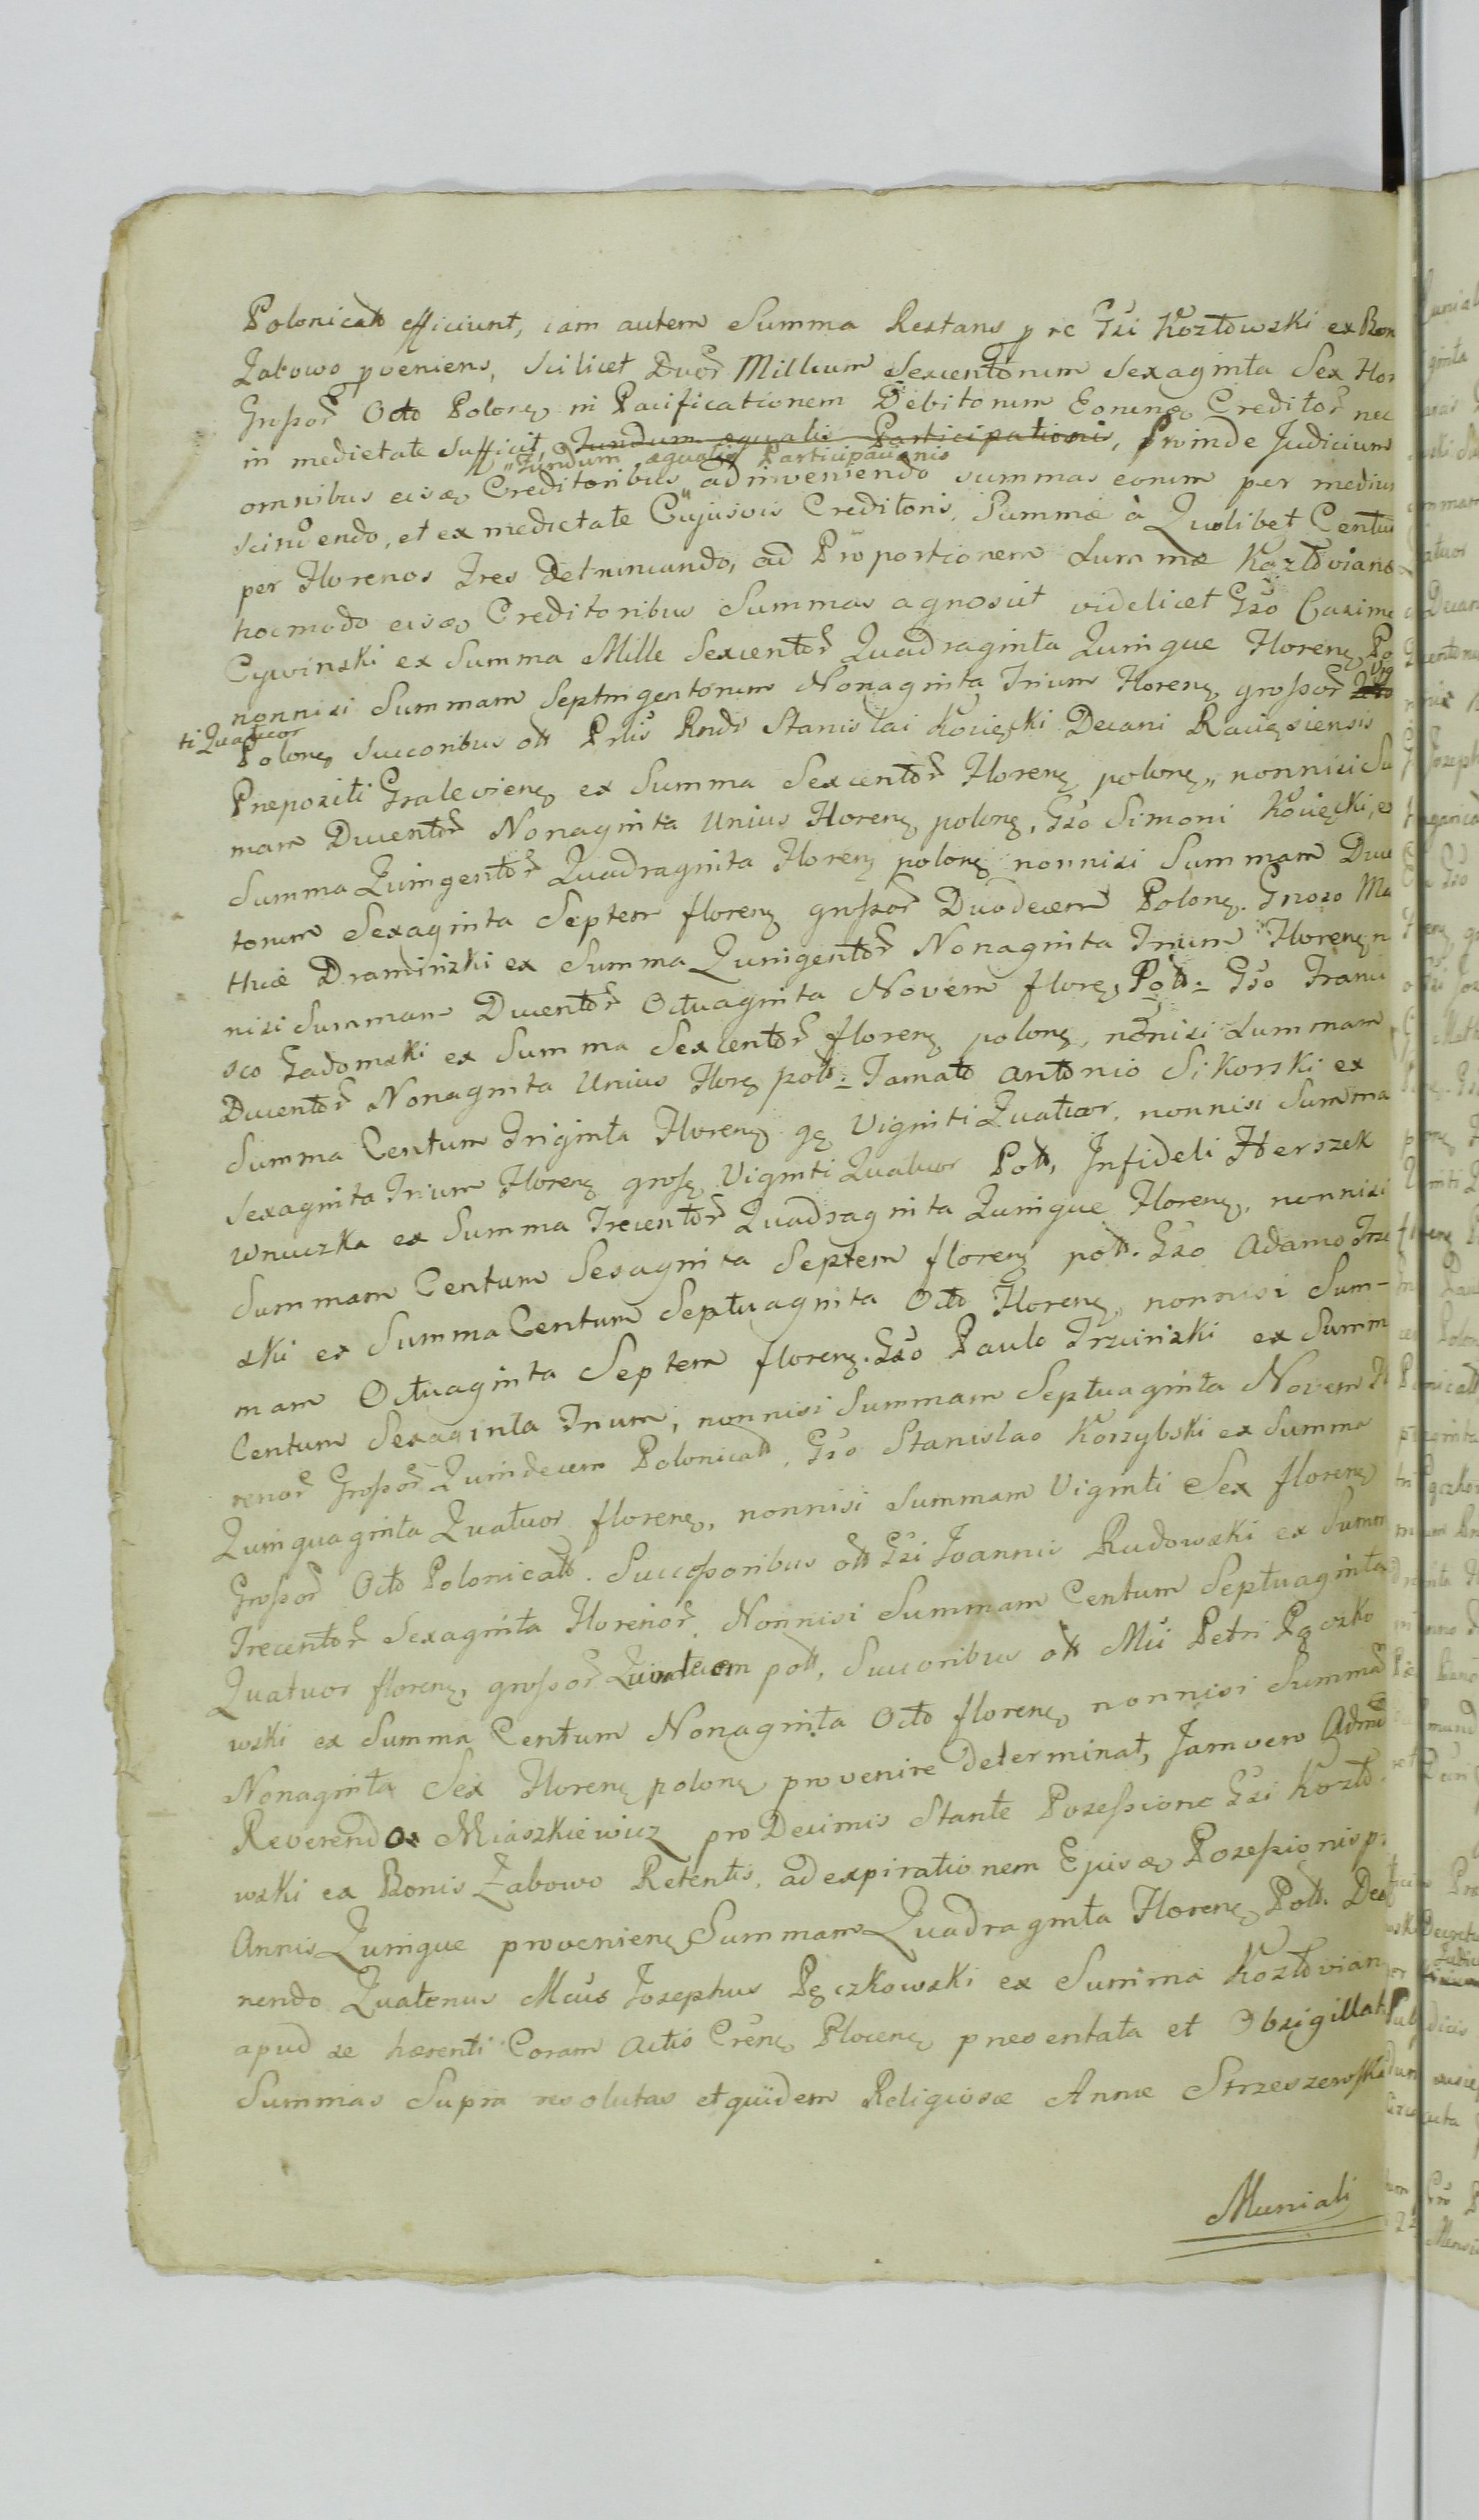 Polonicałt efficiunt, iam autem Summa Restans p re Gsi Kozłowski ex Bon
Zabowo pveniens, scilicet Duor Millium Sexcentorum Sexaginta Sex Flor
Grossor Octo Polonę in Pacificationem Debitorum Eorumq Creditor nec
in medietate sufficit, Fundum æqualis Participationis, Proinde Judicium
"Fundum æqualis Participationis"
omnibus eisq Creditoribus adinveniendo summas eorum per medium
scindendo, et ex medietate Cujusvis Creditoris, Summæ à Quolibet Centu
per Florenos Tres Detruncando, ad Proportionem Summæ Kozłovianæ
hocmodo eisq Creditoribus Summas agnoscit videlicet Gso Casimi
Cywinski ex Summa Mille Sexcentor Quadraginta Quinque Florenę Po
nonnisi Summam Septingentorum Nonaginta Trium Florenę grossor Vig
ti Quatuor
Polonę Succoribus olt Prlis Rndi Stanislai Kovięcki Decani Raciąsiensis
Præpositi Gralevienę ex Summa Sexcentor Florenę polonę, nonnisi Su
mam Ducentor Nonaginta Unius Florenę polonę, Gso Simoni Kovięcki, ex
Summa Quingentor Quadraginta Florenę polonę nonnisi Summam Duce
torum Sexaginta Septem florenę grossor Duodecem Polonę. Gnoso Ma
thiæ Dramiński ex Summa Quingentor Nonaginta Trium Florenę n
nisi Summam Ducentor Octuaginta Novem florę Polt. Gso Franci
sco Gadomski ex Summa Sexcentor florenę polonę, nonnisi Summam
Ducentor Nonaginta Unius Florę polt. Famato Antonio Sikorski ex
Summa Centum Triginta Florenę gę Viginti Quatuor, nonnisi Summa
Sexaginta Trium Florenę grosę Viginti Quatuor Polt, Infideli Herszek
Wnuczka ex Summa Trecentor Quadraginta Quinque Florenę, nonnisi
Summam Centum Sesaginta Septem florenę polt. Gso Adamo Trzci
ski ex Summa Centum Septuaginta Octo Florenę, nonnisi Sum-
mam Octuaginta Septem florenę. Gso Paulo Trzciński ex Summ
Centum Sexaginta Trium, nonnisi Summam Septuaginta Novem Fl
renor Grossor Quindecem Polonicalt, Gso Stanislao Korzybski ex Summa
Quinquaginta Quatuor florenę, nonnisi Summam Viginti Sex florenę
Grossor Octo Polonicalt. Successoribus olt Gsi Joannis Rudowski ex Summ
Trecentor Sexaginta Florenor, Nonnisi Summam Centum Septuaginta
Quatuor florenę, grossor Quindecem polt, Succoribus olt Mci Petri Pęczko
wski ex Summa Centum Nonaginta Octo florenę nonnisi Summam
Nonaginta Sex Florenę polonę provenire determinat, Jamvero Admo
Reverendo Miaszkiewicz pro Decimis Stante Possessione Gsi Kozło
wski ex Bonis Zabowo Retentis, ad expirationem Ejusq Possessionis p
Annis Quinque provenienę Summam Quadraginta Florenę Polt. Dec
nendo Quatenus Mcus Josephus Pęczkowski ex Summa Kozłovian
apud se hærenti Coram Actis Crenę Plocenę præsentata et Obsigillat
Summas Supra resolutas et quidem Religiosæ Annæ Strzeszewska
Muniali